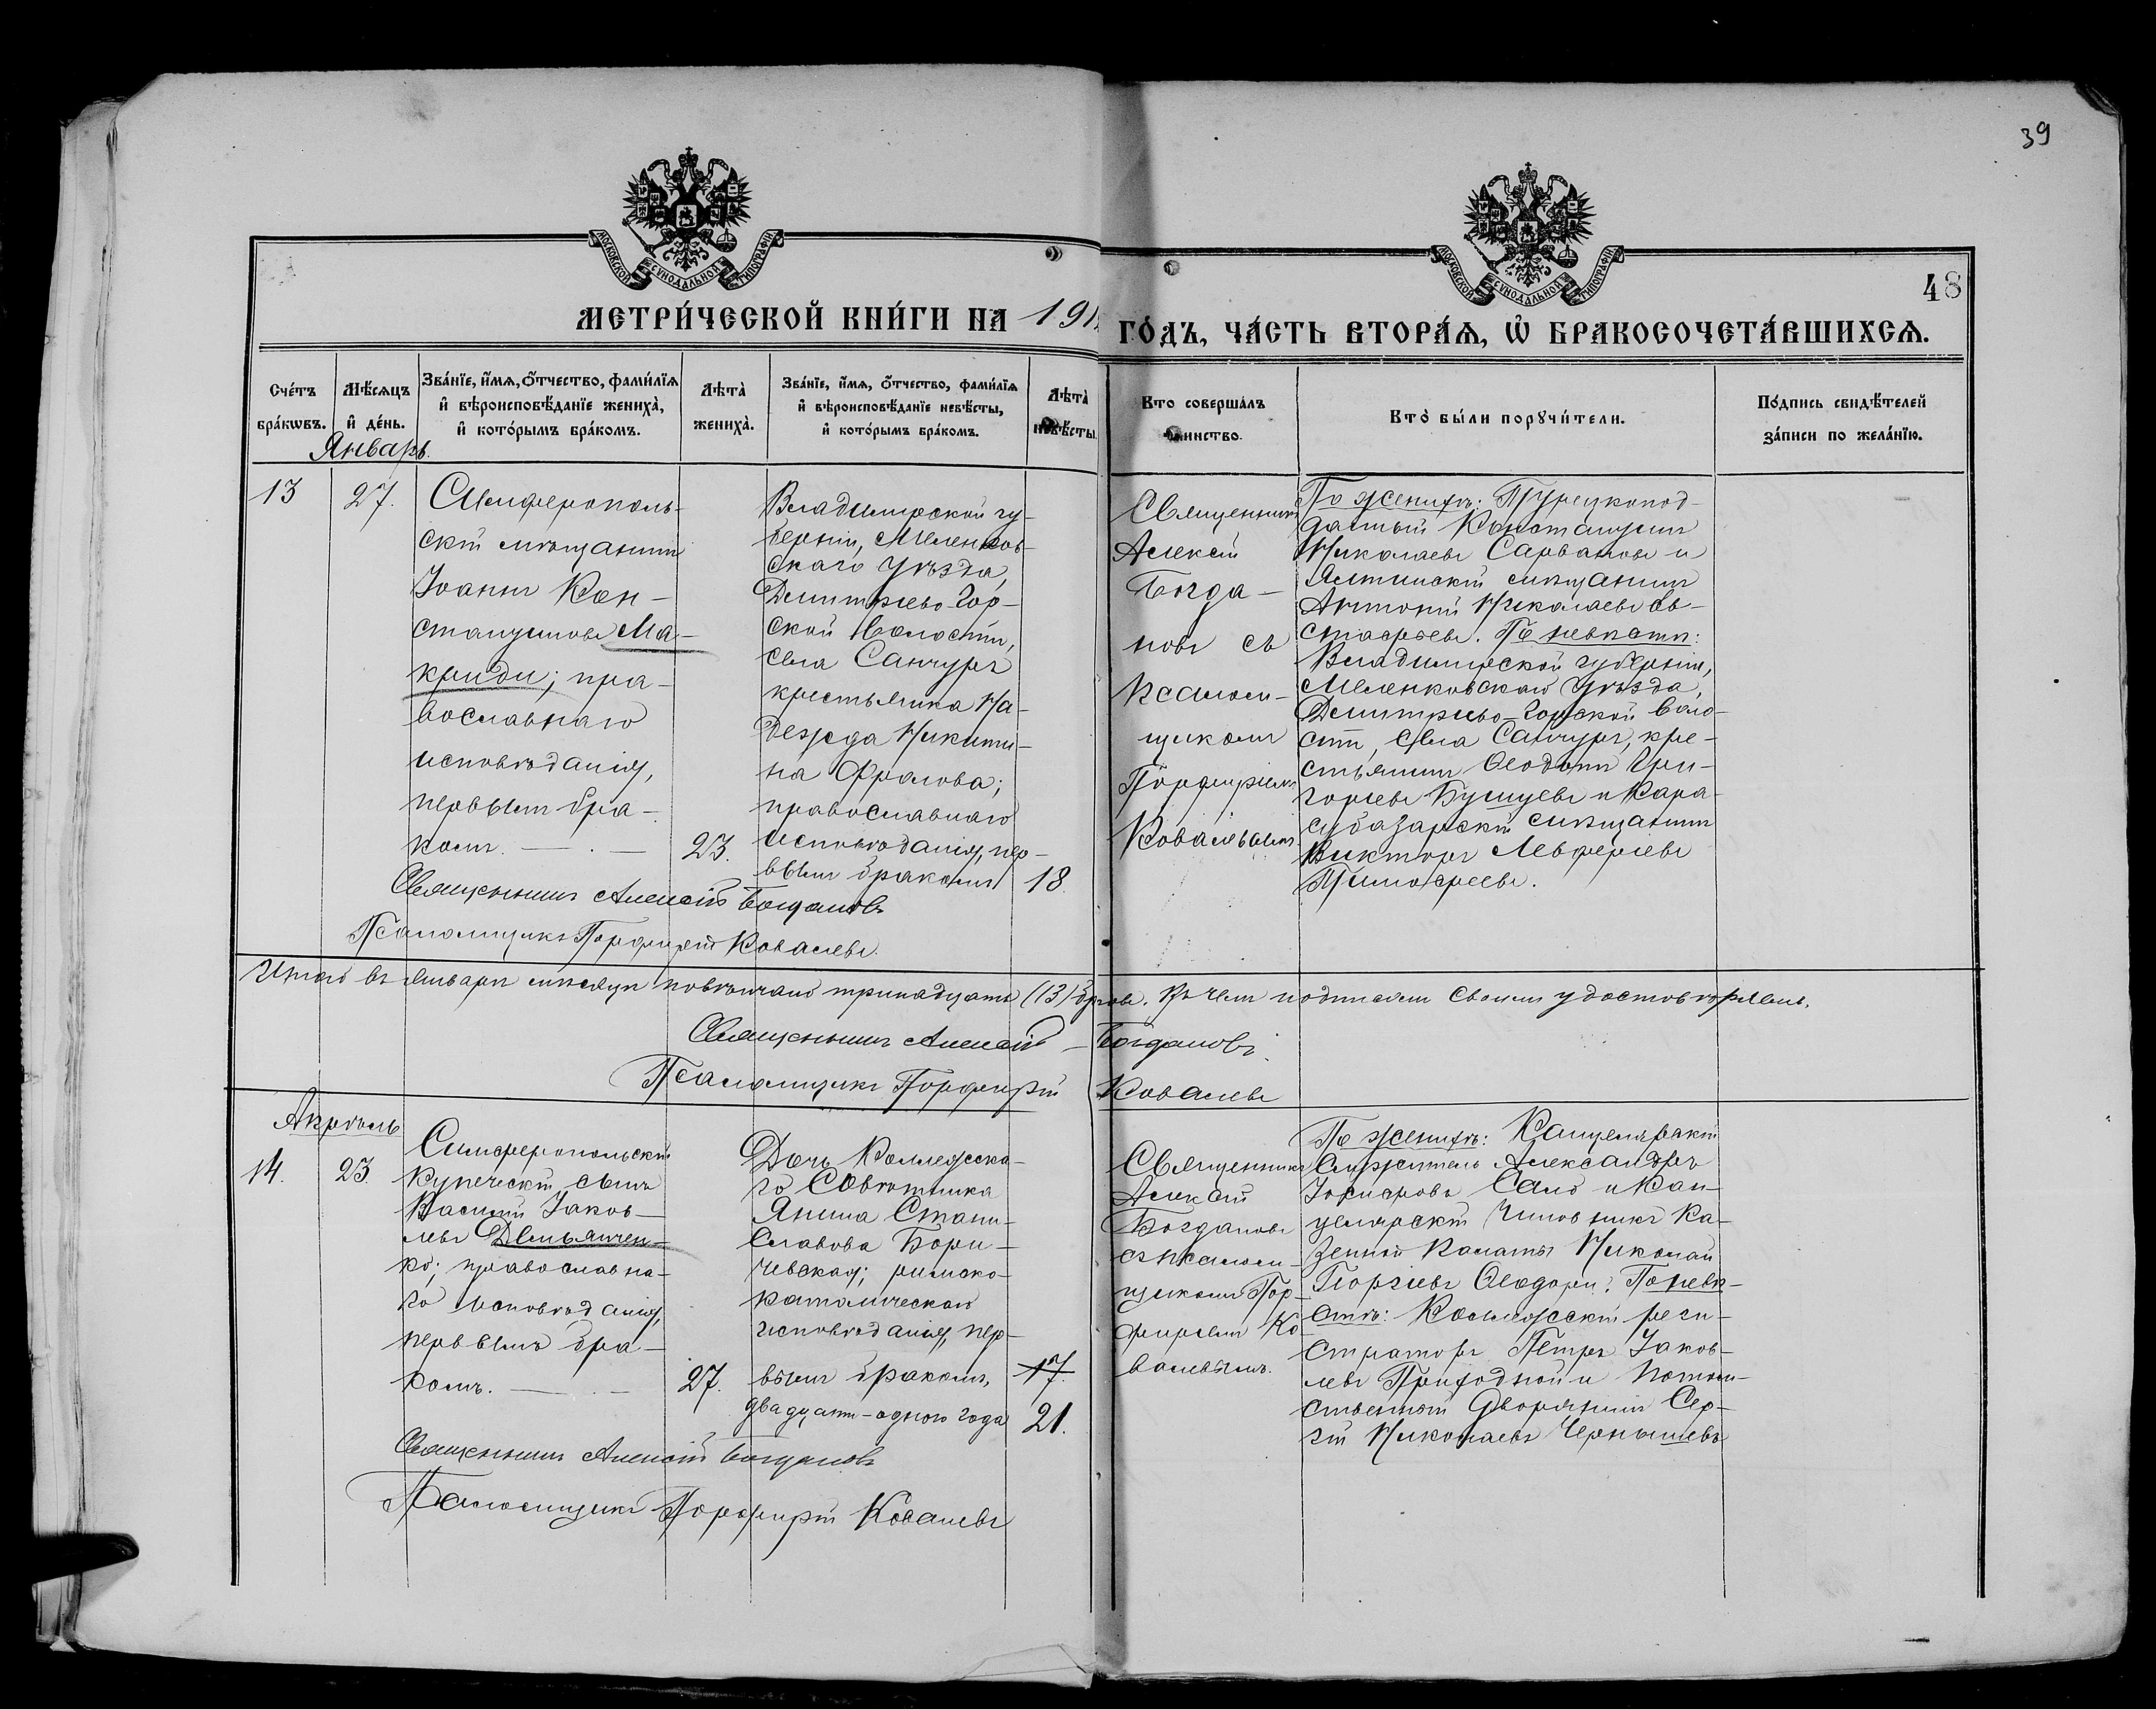 39
МОСКОВСКОЙ СѴНОДАЛЬНОЙ ТИПОГРАФІИ
МОСКОВСКОЙ СѴНОДАЛЬНОЙ ТИПОГРАФІИ
48
МЕТРИ́ЧЕСКОЙ КНИ́ГИ НА 191
ГО́ДЪ, ЧА́СТЬ ВТОРА́Я, Ѡ БРАКОСОЧЕТА́ВШИХСЯ.
Сче́тъ бра́кѡвъ.
Мѣ́сяцъ и҆ де́нь.
Зва́нїе, и҆́мя, ѻ҆́тчество, фами́лїя
и҆ вѣроисповѣ́данїе жениха̀,
и҆ кото́рымъ бра́комъ.
Лѣта̀ жениха̀.
Зва́нїе, и҆́мя, ѻ҆́тчество, фами́лїя
и҆ вѣроисповѣ́данїе невѣ́сты,
и҆ кото́рымъ бра́комъ.
Лѣта̀ невѣ́сты.
Кто соверша́лъ
таинство.
Кто̀ бы́ли порꙋчи́тели.
По́дпись свидѣ́телей
за́писи по жела́нїю.
Январь.
13
27.
Симферополь-
скій мѣщанинъ
Іоаннъ Кон-
стантиновъ Ма-
криди; пра-
вославнаго
исповѣданія,
первымъ бра-
комъ.
23.
Владимірской гу-
берніи, Меленков-
скаго уѣзда,
Дмитріево-Гор-
ской волости,
села Санчугъ
крестьянка На-
дежда Никити-
на Фролова;
православнаго
исповѣданія, пер-
вымъ бракомъ
18.
Священникъ
Алексій
Богда-
новъ съ
псалом-
щикомъ
Порфиріемъ
Ковалевымъ
По женихѣ: Турецкопод-
данный Константинъ
Николаевъ Сарвановъ и
Ялтинскій мѣщанинъ
Антоній Николаевъ Ев-
стафьевъ. По невѣстѣ:
Владимірской губерніи,
Меленковскаго уѣзда,
Дмитріево-Горской воло-
сти, села Санчугъ, кре-
стьянинъ Ѳеодотъ Гри-
горьевъ и Кара-
субазарскій мѣщанинъ
Викторъ
Тимофеевъ.
Священникъ Алексій Богдановъ
Псаломщикъ Порфирій Ковалевъ.
Итого въ январѣ мѣсяцѣ повѣнчано тринадцать (13) браковъ. Въ чемъ подписомъ своимъ удостовѣряемъ.
Священникъ Алексій Богдановъ.
Псаломщикъ Порфирій Ковалевъ
Апрѣль
14.
23.
Симферопольскій
купеческій сынъ
Василій Іаков-
левъ Демьянчен-
ко; православна-
го исповѣданія,
первымъ бра-
комъ.
27.
Дочь Коллежска-
го Совѣтника
Янина Стани-
славова Бори-
чевская; римско-
католическаго
исповѣданія, пер-
вымъ бракомъ,
двадцати-одного года
17.
21.
Священникъ
Алексій
Богдановъ
съ псалом-
щикомъ Пор-
фиріемъ Ко-
валевымъ.
По женихѣ: Канцелярскій
Служитель Александръ
и Кан-
целярскій чиновникъ Ка-
зенной Палаты Николай
Георгіевъ По невѣ-
стѣ: Коллежскій реги-
страторъ Петръ Іаков-
левъ Приходной и потом-
ственный Дворянинъ Сер-
гій Николаевъ Чернышевъ
Священникъ Алексій Богдановъ
Псаломщикъ Порфирій Ковалевъ